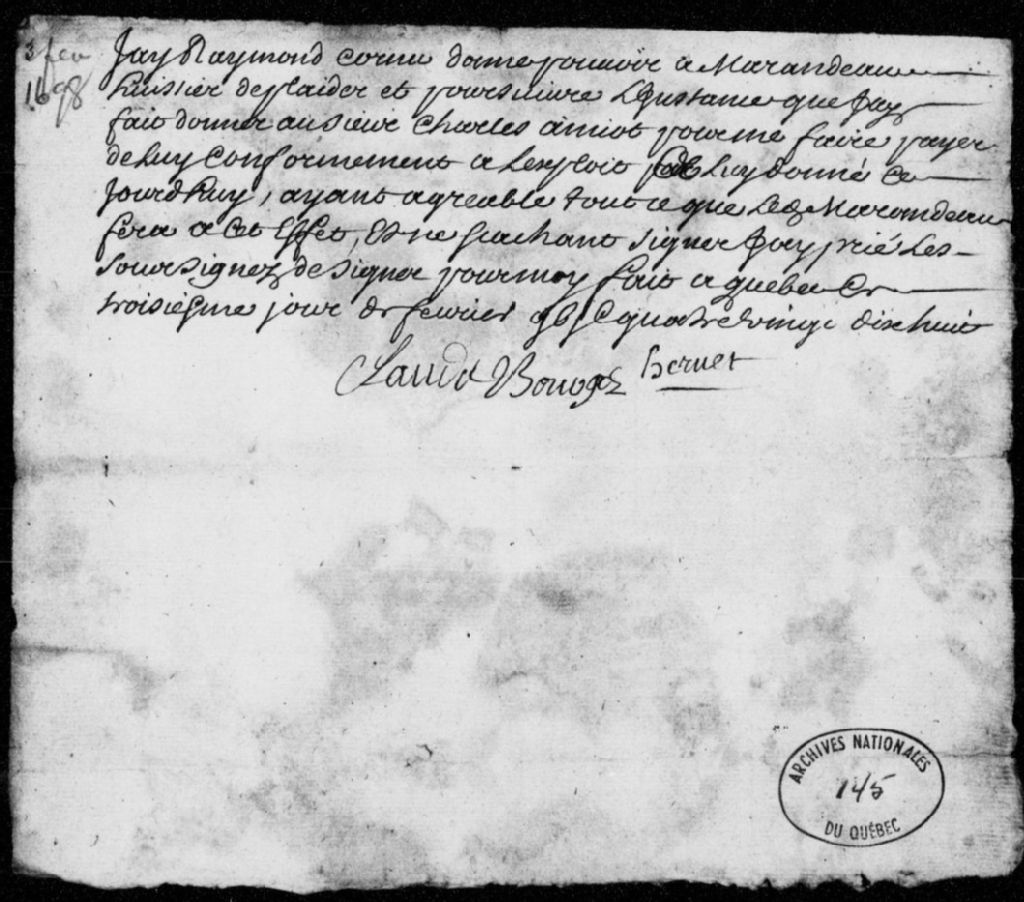 3 fev
1698
Jay Raymond cornu donne pouvoir a Marandeau
huissier de plaider et poursuivre Linstance que Jay
fait donner au sieur Charles amiot pour me faire payer
de Luy Conformement a Lexploit Luy donné ce
Jourdhuy, ayant agreable tout ce que Led Marandeau
fera a cet Effet, Et ne scachant signer Jay prié Les
soussignez de signer pour moy fait a quebec Ce
troisiesme jour de fevrier gbjC quatrevingt dix huit
hernet
ARCHIVES NATIONALES
145
DU QUÉBEC